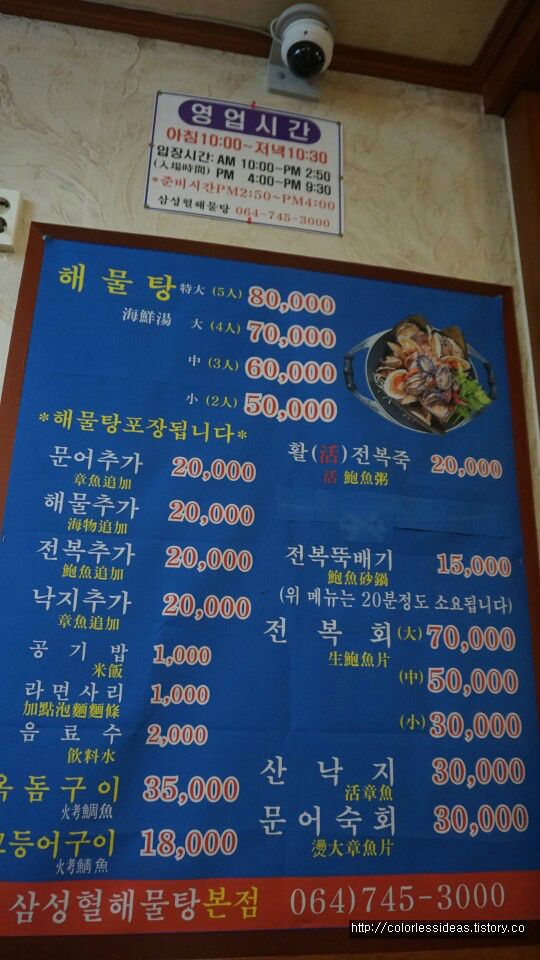 영업시간
아침10:00~저녁10:30
입장시간: AM 10:00~PM 2:50
(入場時間) PM 4:00~PM 9:30
*준비시간PM2:50~PM4:00
삼성혈해물탕 064-745-3000
해물탕 特大 (5人) 80,000
海鮮湯 大 (4人) 70,000
中 (3人) 60,000
小 (2人) 50,000
*해물탕포장됩니다*
문어추가 20,000
章魚追加
해물추가 20,000
海物追加
전복추가 20,000
鮑魚追加
낙지추가 20,000
章魚追加
공기밥 1,000
米飯
라면사리 1,000
加點泡麵麵條
음료수 2,000
飲料水
옥돔구이 35,000
火考鯛魚
고등어구이 18,000
火考鯖魚
활(活)전복죽 20,000
活 鮑魚粥
전복뚝배기 15,000
鮑魚砂鍋
(위 메뉴는 20분정도 소요됩니다)
전복회 (大) 70,000
生鮑魚片
(中) 50,000
(小) 30,000
산낙지 30,000
活章魚
문어숙회 30,000
燙大章魚片
삼성혈해물탕본점 064)745-3000
http://colorlessideas.tistory.co